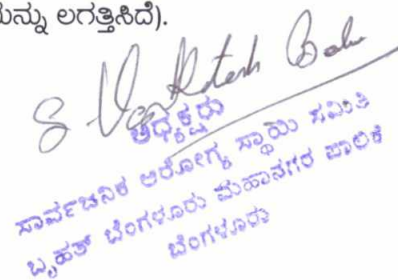 ಯನ್ನು ಲಗತ್ತಿಸಿದೆ).
S Venkatesh Babu
ಅಧ್ಯಕ್ಷರು
ಸಾರ್ವಜನಿಕ ಆರೋಗ್ಯ ಸ್ಥಾಯಿ ಸಮಿತಿ
ಬೃಹತ್ ಬೆಂಗಳೂರು ಮಹಾನಗರ ಪಾಲಿಕೆ
ಬೆಂಗಳೂರು